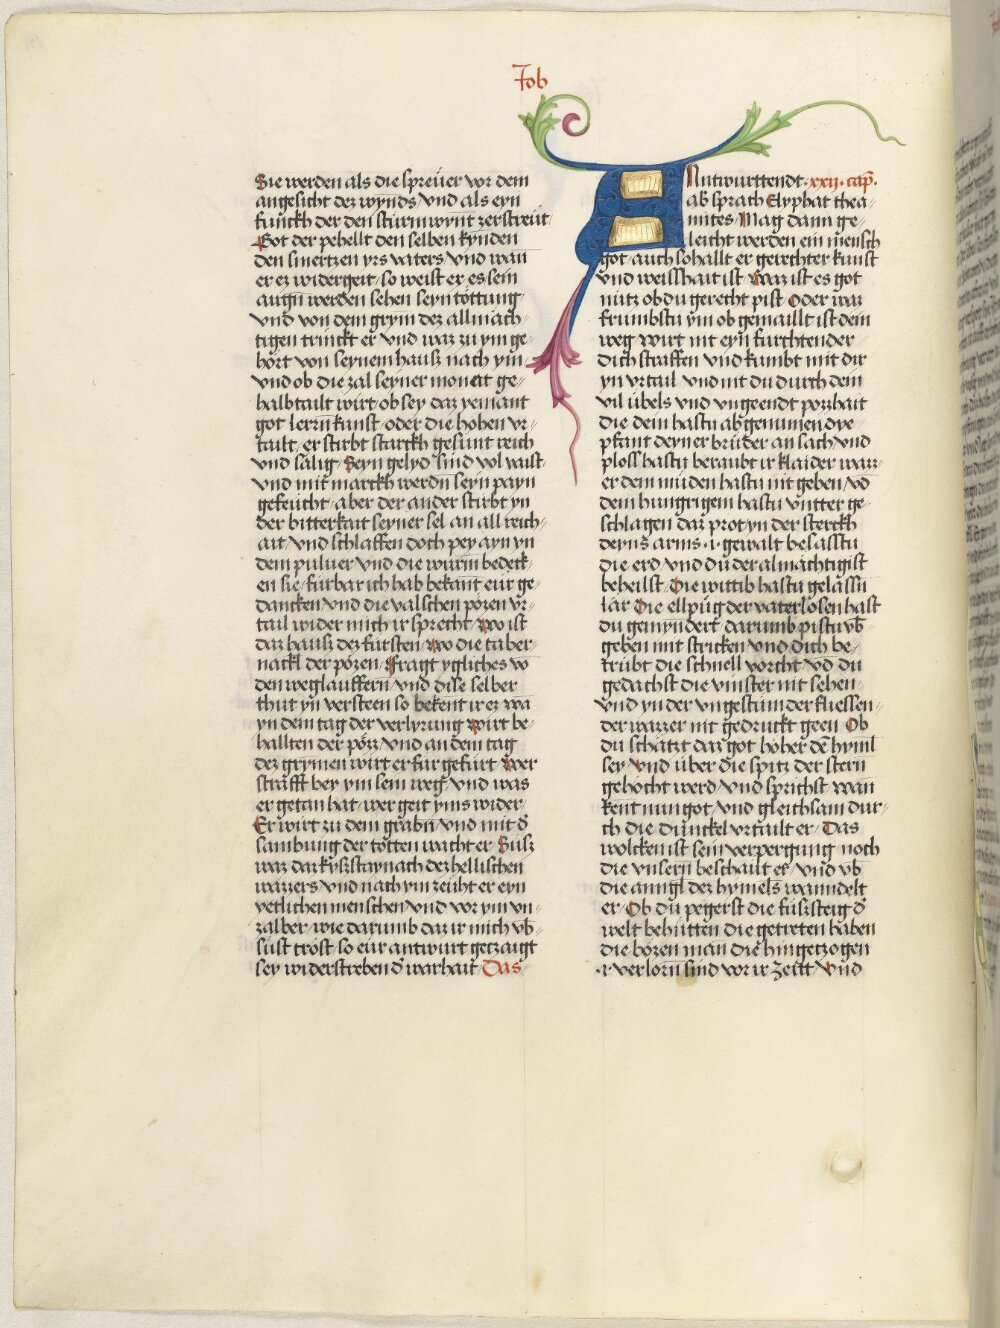 Job
Sie werden als die spreüer vor dem
angesicht dez wynds vnd als eyn
funckh der den sturmwynt zerstreut
Got der pehellt den selben kynden
den smertzen yrs vaters vnd wan
er ez widergeit so weist er es sein
augn werden sehen seyn töttung
vnd von dem grym dez allmäch¬
tigen trinckt er vnd waz zu ym ge¬
hört von seynem hausz nach ym
vnd ob die zal seyner moneit ge¬
halbtailt wirt ob sey daz yemant
got lern kunst oder die hohen vr¬
tailt er stirbt starckh gesunt reich
vnd sälig Seyn gelyd sind vol waist
vnd mit marckh werdn seyn payn
gefeücht aber der ander stirbt yn
der bitterkait seyner sel an all reich¬
ait vnd schlaffen doch pey ayn yn
dem puluer vnd die würm bedeck¬
en sie fürbar ich hab bekant eur ge¬
dancken vnd die valschen pözen vr¬
tail wider mich ir sprecht wo ist
daz hausz dez fürsten wo die taber¬
nackl der pözen Fragt ygliches vo
den weglauffern vnd dise selber
thut yn versteen so bekent ir ez wa
yn dem tag der verlyzung wirt be¬
hallten der pözz vnd an dem tag
dez grymen wirt er für gefürt Wer
strafft bey ym sein weg vnd was
er getan hat wer geit yms wider
Er wirt zu dem grabn vnd mit d̄
sambung der totten wacht er Süsz
waz daz kyszstay nach dez hellischen
wazzers vnd nach ym zeüht er eyn
yetlichen menschen vnd vor ym vn¬
zalber wie darumb daz ir mich vb̄
süst tröst so eür antwurt getzaigt
sey widerstreben d̄ warhait Das
Antwurttendt .xxij. cap̄.
ab sprach Elyphat thea¬
nites Mag dann ge¬
leicht werden ein mensch
got auch so hallt er gerechter kunst
vnd weisshait ist Waz ist es got
nütz ob du gerecht pist Oder waz
frumbstu ym ob gemaillt ist dein
weg wirt nit eyn fürchtender
dich straffen vnd kumbt mit dir
yn vrtail vnd nit du durch dem
vil übels vnd vngeendt pozzhait
die dem hastu abgenumen dye
pfant deyner brüder an sach vnd
plosz hastu beraubt ir klaider wazz¬
er dem müden hastu nit geben vō
dem hungrigem hastu vntter ge¬
schlagen daz prot yn der sterckh
deyns arms .i. gewalt besasstu
die erd vnd du der almächtigist
beheilst Die wittib hastu gelassn
lär Die ellpüg der vaterlosen hast
du gemyndert darumb pistu vb̄
geben mit stricken vnd dich be¬
trübt die schnell vorcht vō du
gedachst die vinster nit sehen
vnd yn der vngestüm der fliessen¬
der wazzer nit gedruckt geen Ob
du schätzt daz got höher dē hyml
sey vnd über die spitz der stern
gehöcht werd vnd sprichst wan
kent nun got vnd gleichsam dur¬
ch die dünckel vrtailt er Das
wolcken ist sein verpergung noch
die vnsern beschaut er vnd vb̄
die anngl dez hymels wanndelt
er Ob du pegerst die fuszsteig d̄
welt behütten die getreten haben
die bözen man die hingetzogen
.i. verlorn sind vor ir zeitt Vnd